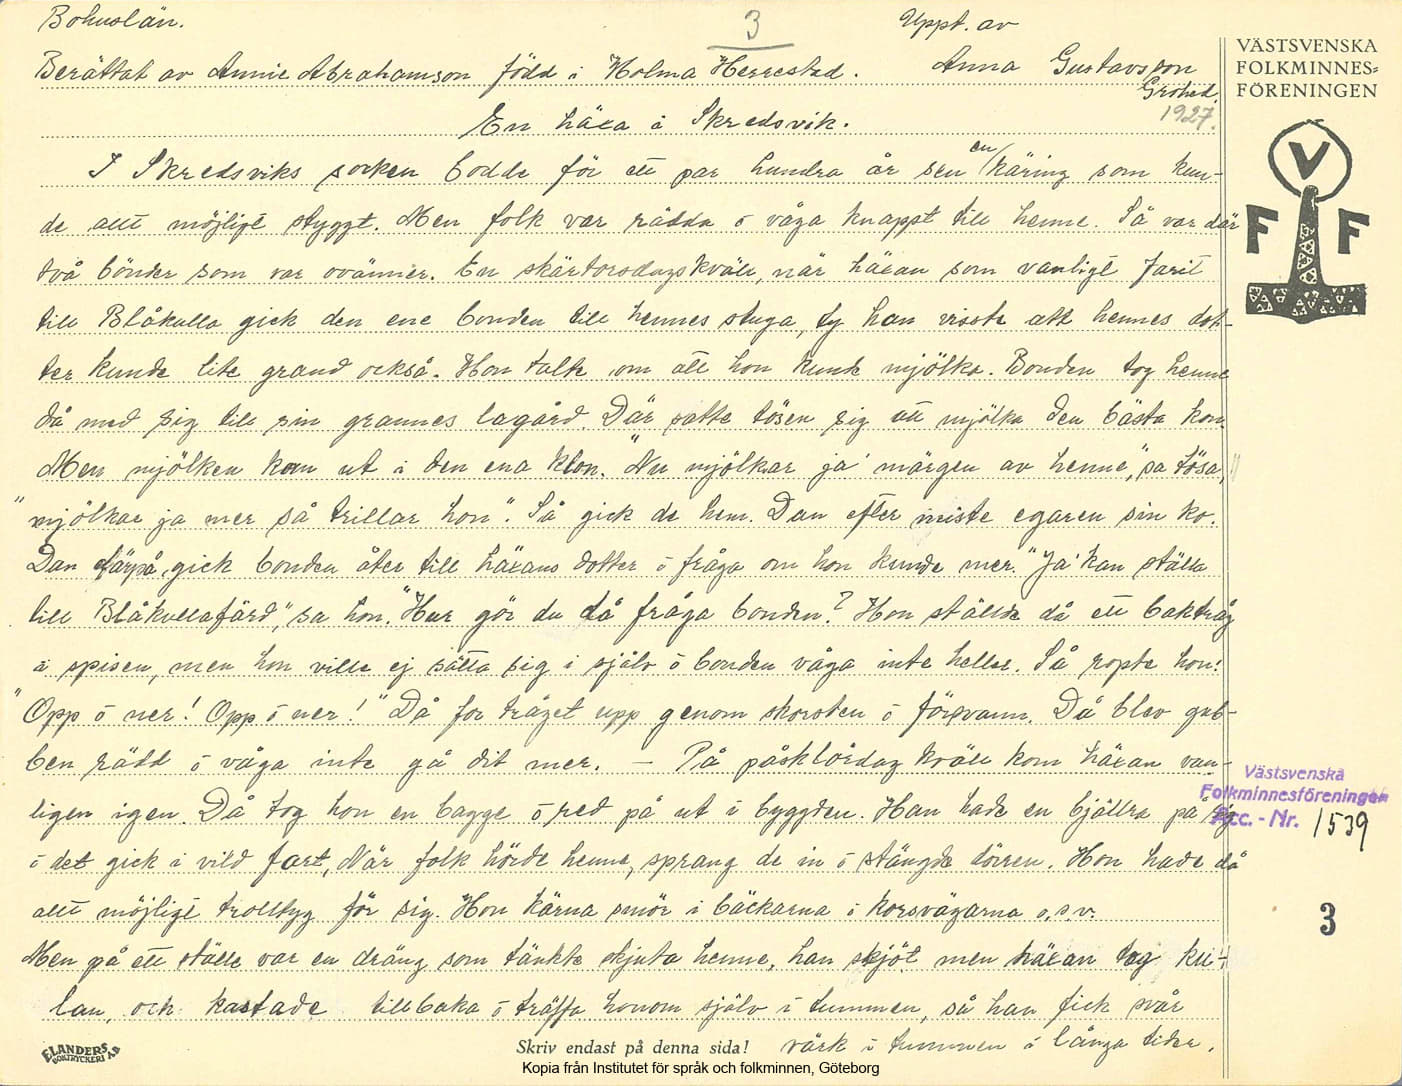 Bohuslän.
3
Uppt. av
Berättat av Annie Abrahamson född i Holma Herrestad.
Anna Gustavsson
Grohed.
1927.
VÄSTSVENSKA
FOLKMINNES=
FÖRENINGEN
En häxa i Skredsvik.
V
F F
I Skredsviks socken bodde för ett par hundra år sen en käring som kun-
de allt möjligt styggt. Men folk var rädda o våga knappt till henne. Så var där
två bönder som var ovänner. En skärtorsdagskväll, när häxan som vanligt farit
till Blåkulla gick den ene bonden till hennes stuga, ty han visste att hennes dot-
ter kunde lite grand också. Hon talte om att hon kunde mjölka. Bonden tog henne
då med sig till sin grannes lagård. Där satte tösen sig att mjölka den bästa kon.
Men mjölken kom ut i den ena klon. "Nu mjölkar ja' märgen av henne," sa tösa,
"mjölkar ja mer så trillar hon". Så gick de hem. Dan efter miste egaren sin ko.
Dan därpå gick bonden åter till häxans dotter o fråga om hon kunde mer. "Ja' kan ställa
till Blåkullafärd," sa hon. "Hur gör du då fråga bonden? Hon ställde då ett baktråg
i spisen, men hon ville ej sätta sig i själv o bonden våga inte heller. Så ropte hon:
"Opp o ner! Opp o ner!" Då for tråget upp genom skorsten o försvann. Då blev gub-
ben rädd o våga inte gå dit mer. — På påsklördag kväll kom häxan van-
ligen igen. Då tog hon en bagge o red på ut i byggden. Han hade en bjällra på sig
o det gick i vild fart, När folk hörde henne, sprang de in o stängde dörren. Hon hade då
allt möjligt trolltyg för sig. Hon kärna smör i bäckarna i korsvägarna o.s.v.
Men på ett ställe var en dräng som tänkte skjuta henne, han skjöt men häxan tog ku-
lan, och kastade tillbaka o träffa honom själv i tummen, så han fick svår
värk i tummen i långa tider.
Västsvenska
Folkminnesföreningen
Acc. - Nr. 1539
3
ELANDERS
BOKTRYCKERI AB
Skriv endast på denna sida!
Kopia från Institutet för språk och folkminnen, Göteborg